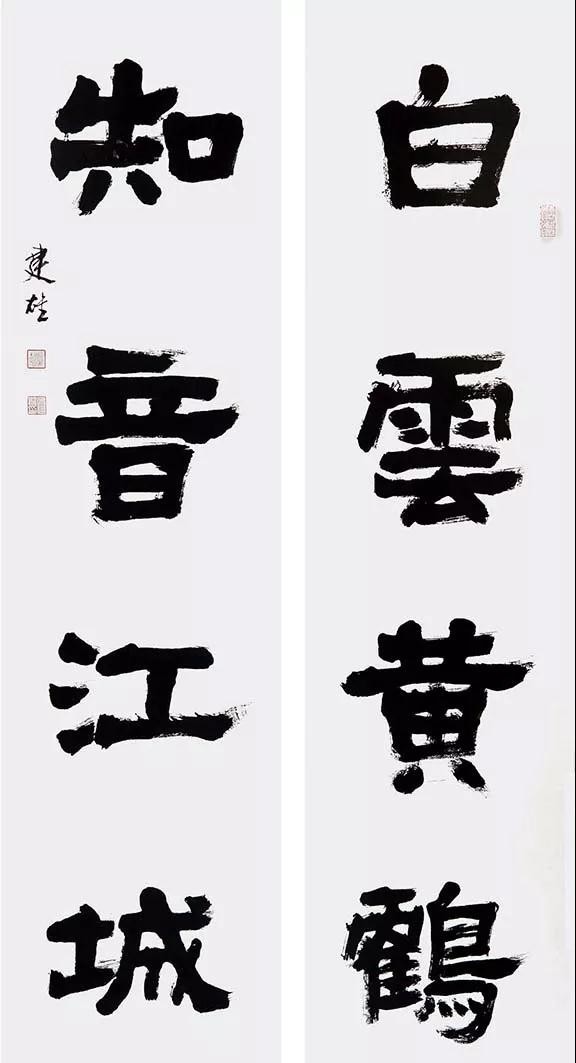 白雲黄鶴
知音江城
建雄